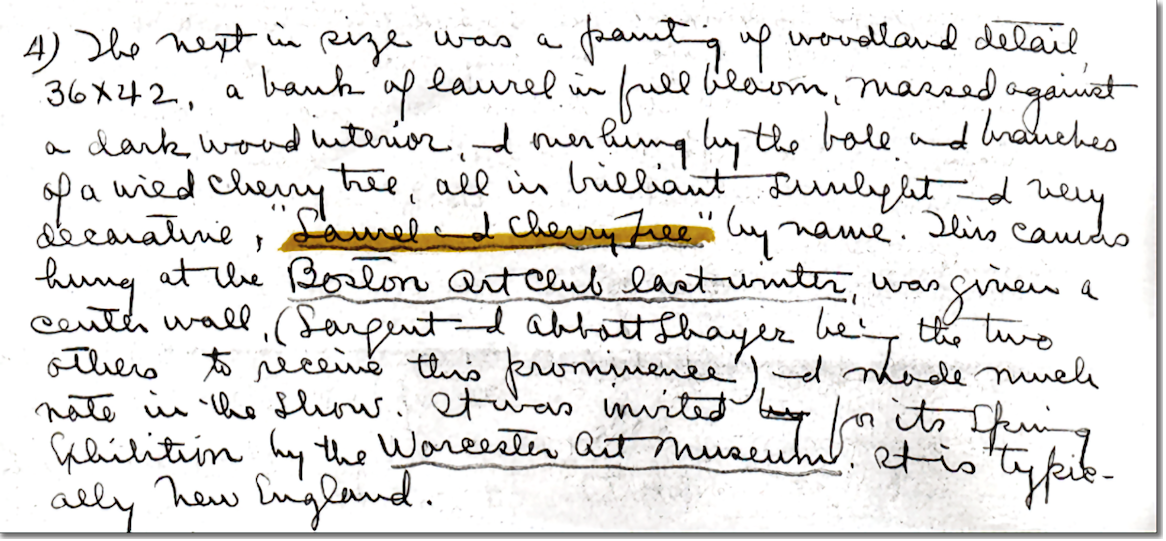 4) The next in size was a painting of woodland detail,
36x42, a bank of laurel in full bloom, massed against
a dark wood interior, -d overhung by the bole and branches
of a wild cherry tree, all in brilliant sunlight -d very
decorative, "Laurel -d Cherry Tree" by name. This canvas
hung at the Boston Art Club last winter, was given a
center wall, (Sargent -d Abbott Thayer being the two
others to receive this prominence) -d made much
note in the show. It was invited by for its Spring
Exhibition by the Worcester Art Museum. It is typic-
ally New England.